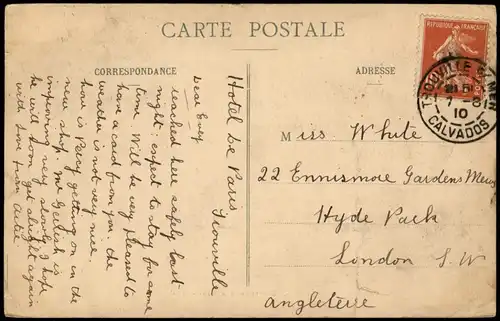 CARTE POSTALE
CORRESPONDANCE
ADRESSE
REPUBLIQUE FRANÇAISE
TROUVILLE
7 - 8
10
CALVADOS
Hotel De Paris
Trouville
Dear Emy
reached here safely last
night. expect to stay for some
time Will be very pleased to
have a card from you. the
weather is not very nice.
how is Percy getting on in the
new shop. Mr Gerdish is
improving very slowly I hope
he will soon get alright again
with love from Artie
Miss White
22 Ennismore Gardens Mews
Hyde Park
London S. W
Angleterre